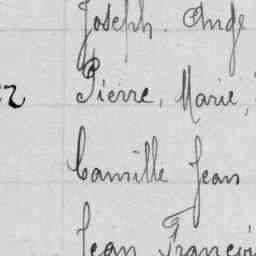 Joseph. Ange
Pierre, Marie,
Camille Jean
Jean Franço